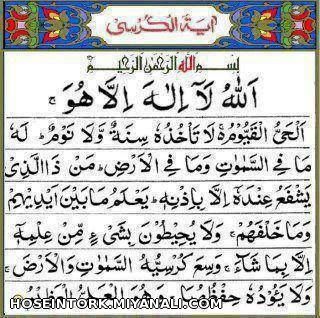 آیة الکرسی
بِسْمِ اللهِ الرَّحْمٰنِ الرَّحِیْمِ
اَللهُ لَآ اِلٰهَ اِلَّا هُوَ ۚ
اَلْحَیُّ الْقَیُّوْمُ ەۚ لَا تَاْخُذُهٗ سِنَةٌ وَّلَا نَوْمٌ ؕ لَهٗ
مَا فِی السَّمٰوٰتِ وَمَا فِی الْاَرْضِ ؕ مَنْ ذَا الَّذِیْ
یَشْفَعُ عِنْدَهٗٓ اِلَّا بِاِذْنِهٖ ؕ یَعْلَمُ مَا بَیْنَ اَیْدِیْهِمْ
وَمَا خَلْفَهُمْ ۚ وَلَا یُحِیْطُوْنَ بِشَیْءٍ مِّنْ عِلْمِهٖٓ
اِلَّا بِمَا شَآءَ ۚ وَسِعَ کُرْسِیُّهُ السَّمٰوٰتِ وَالْاَرْضَ ۚ
وَلَا یَئُوْدُهٗ حِفْظُهُمَا ۚ وَهُوَ الْعَلِیُّ الْعَظِیْمُ
HOSEINTORK.MIYANALI.COM